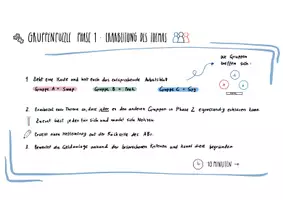 GRUPPENPUZZLE PHASE 1 - ERARBEITUNG DES THEMAS
die Gruppen
treffen sich:
1. Zieht eine Karte und holt euch das entsprechende Arbeitsblatt
Gruppe A = Gruppe B = Gruppe C =
2. Erarbeitet das Thema so, dass ihr es den anderen Gruppen in Phase 2 eigenständig erklären könnt
Zuerst liest jeder für sich und macht sich Notizen
eure Zusammenfassung auf der Rückseite des ABs.
3. Bewertet die Geldanlage anhand der besprochenen Kriterien und könnt diese begründen
10 MINUTEN